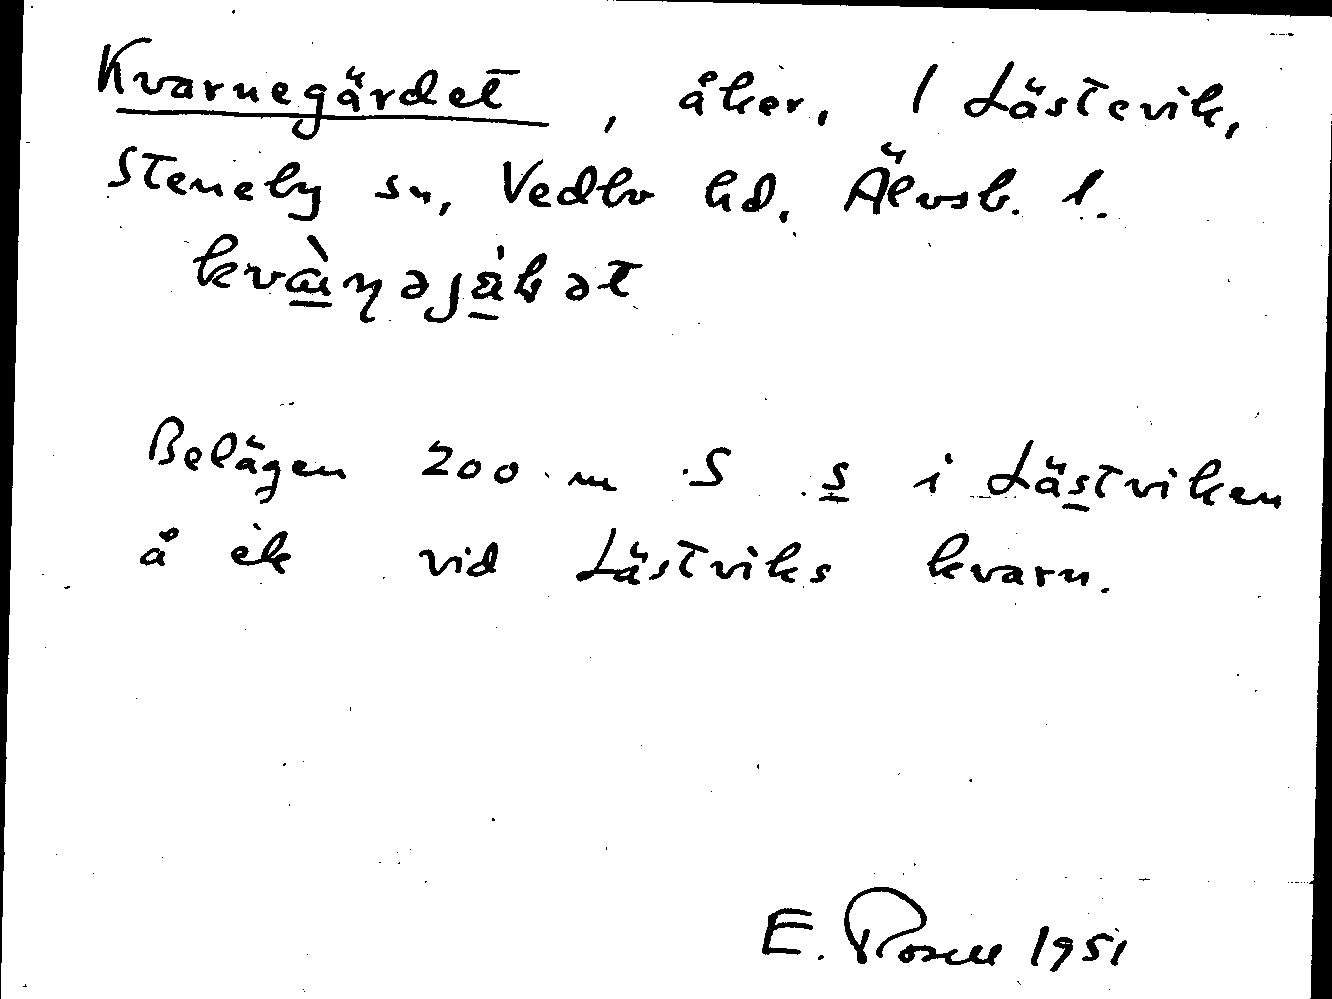 Kvarnegärdet, åker, 1 Lästevik,
Steneby sn, Vedbo hd. Älvsb. l.
Belägen 200 m S s i Lästviken
å ek vid Lästviks kvarn.
E. Rosell 1951